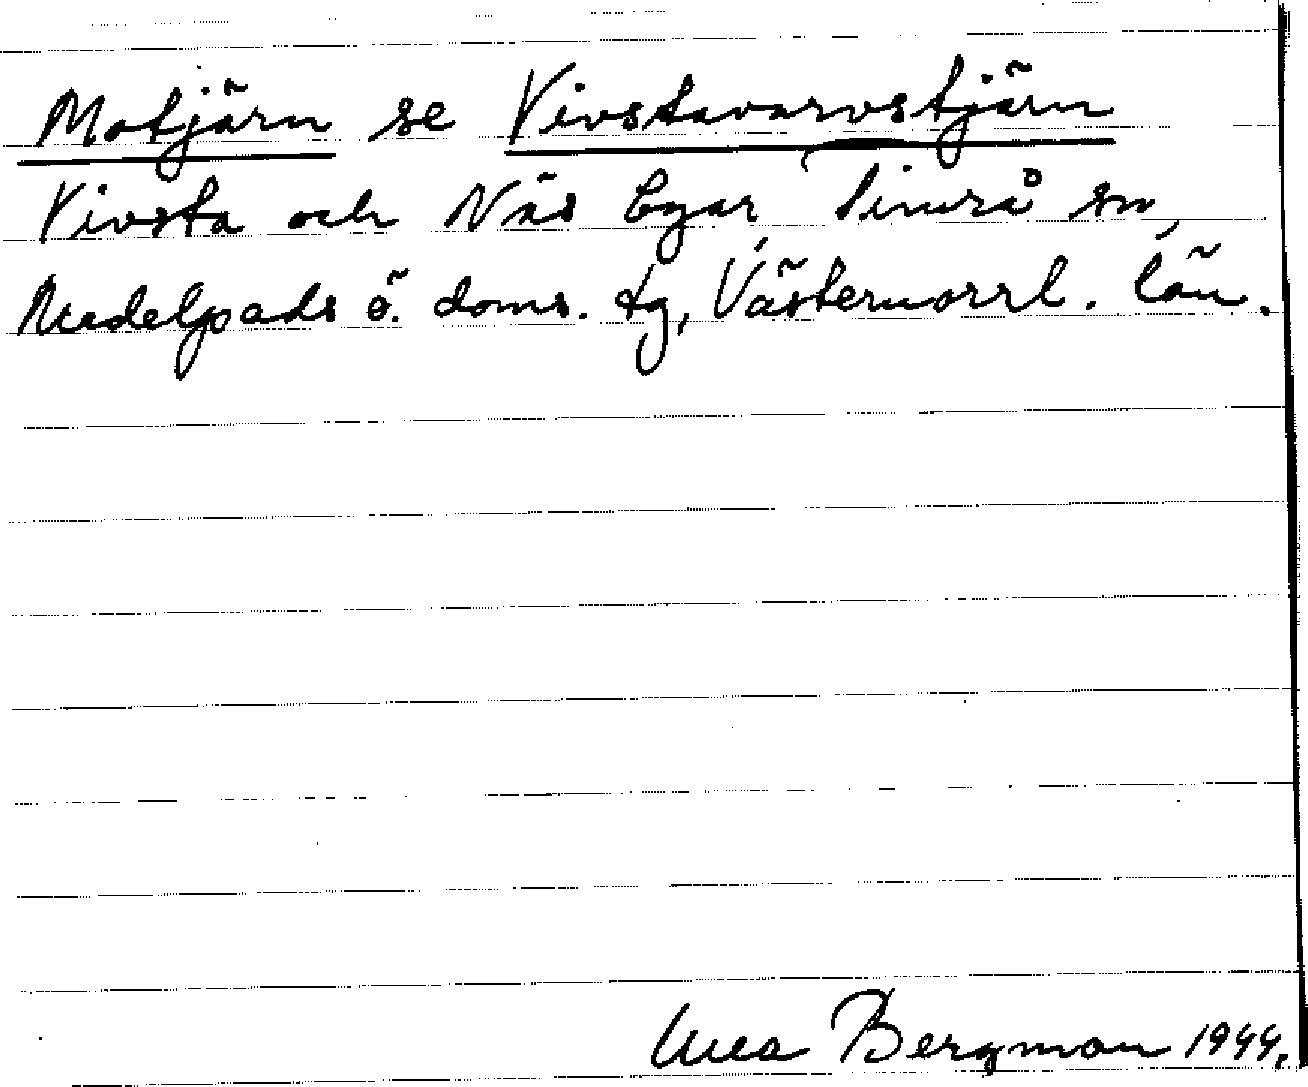 Motjärn se Vivstavarvstjärn
Vivsta och Näs byar, Timrå sn,
Medelpads ö. doms. tg, Västernorrl. län.
Bergman 1944.